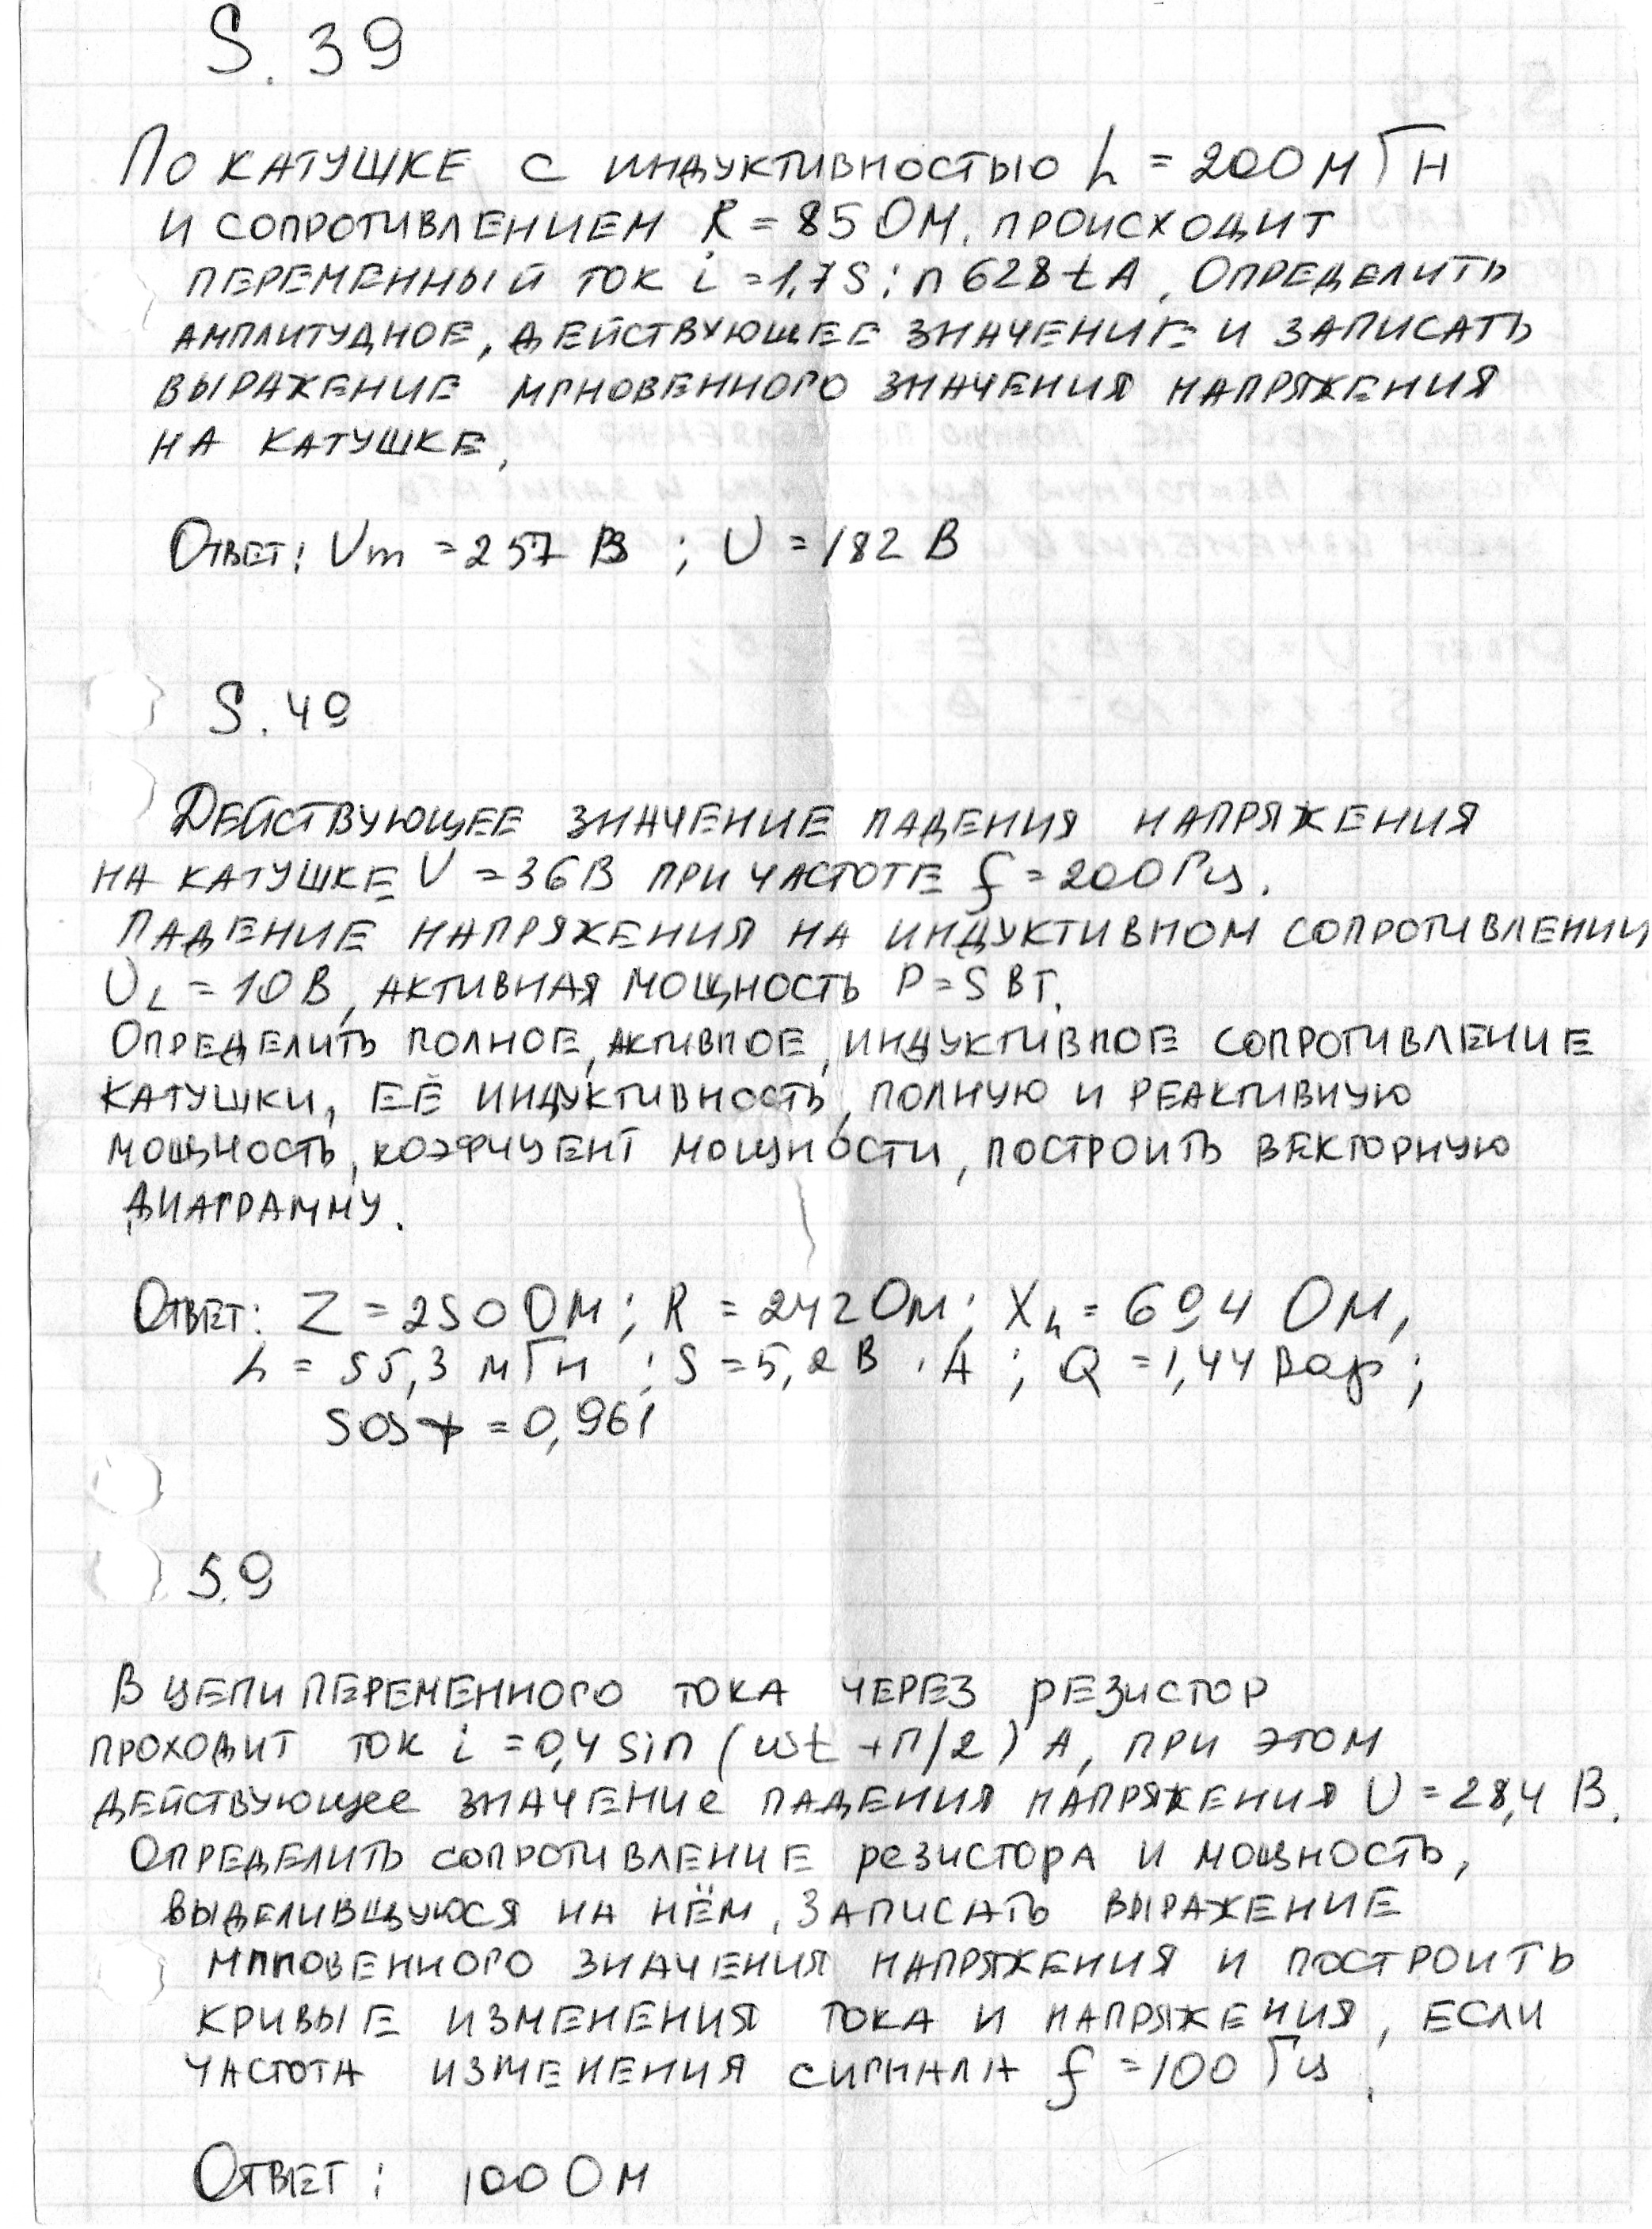 5.39
По катушке с индуктивностью L = 200 мГн
и сопротивлением R = 85 Ом, происходит
переменный ток i = 1,7 sin 628 t А, Определить
амплитудное, действующее значение и записать
выражение мгновенного значения напряжения
на катушке,
Ответ: Um = 257 В ; U = 182 В
5.49
Действующее значение падения напряжения
на катушке U = 36 В при частоте f = 200 Гц.
Падение напряжения на индуктивном сопротивлении
UL = 10 В, активная мощность P = 5 Вт.
Определить полное, активное, индуктивное сопротивление
катушки, её индуктивность, полную и реактивную
мощность, коэфициент мощности, построить векторную
диаграмму.
Ответ: Z = 250 Ом; R = 242 Ом; XL = 69,4 Ом,
L = 55,3 мГн ; S = 5,2 В · А ; Q = 1,44 Вар ;
sos φ = 0,961
5.9
В цепи переменного тока через резистор
проходит ток i = 0,4 sin (ωt + π/2) А, при этом
действующее значение падения напряжения U = 28,4 В.
Определить сопротивление резистора и мощность,
выделивщуюся на нём, Записать выражение
мгновенного значения напряжения и построить
кривые изменения тока и напряжения, если
частота изменения сигнала f = 100 Гц.
Ответ: 100 Ом